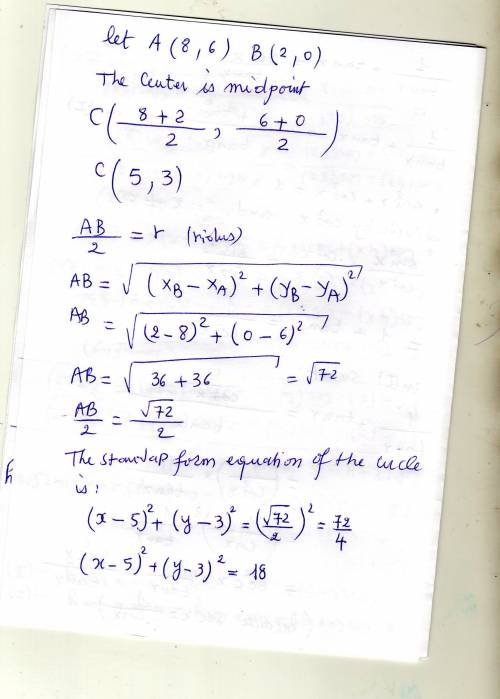 let A (8,6) B (2,0)
The Center is midpoint
C( (8+2)/2 , (6+0)/2 )
C (5,3)
AB/2 = r
AB = √((x_B - x_A)² + (y_B - y_A)²)
AB = √((2-8)² + (0-6)²)
AB = √(36+36) = √72
AB/2 = √72/2
The form equation of the circle
is:
(x-5)² + (y-3)² = (√72/2)² = 72/4
(x-5)² + (y-3)² = 18